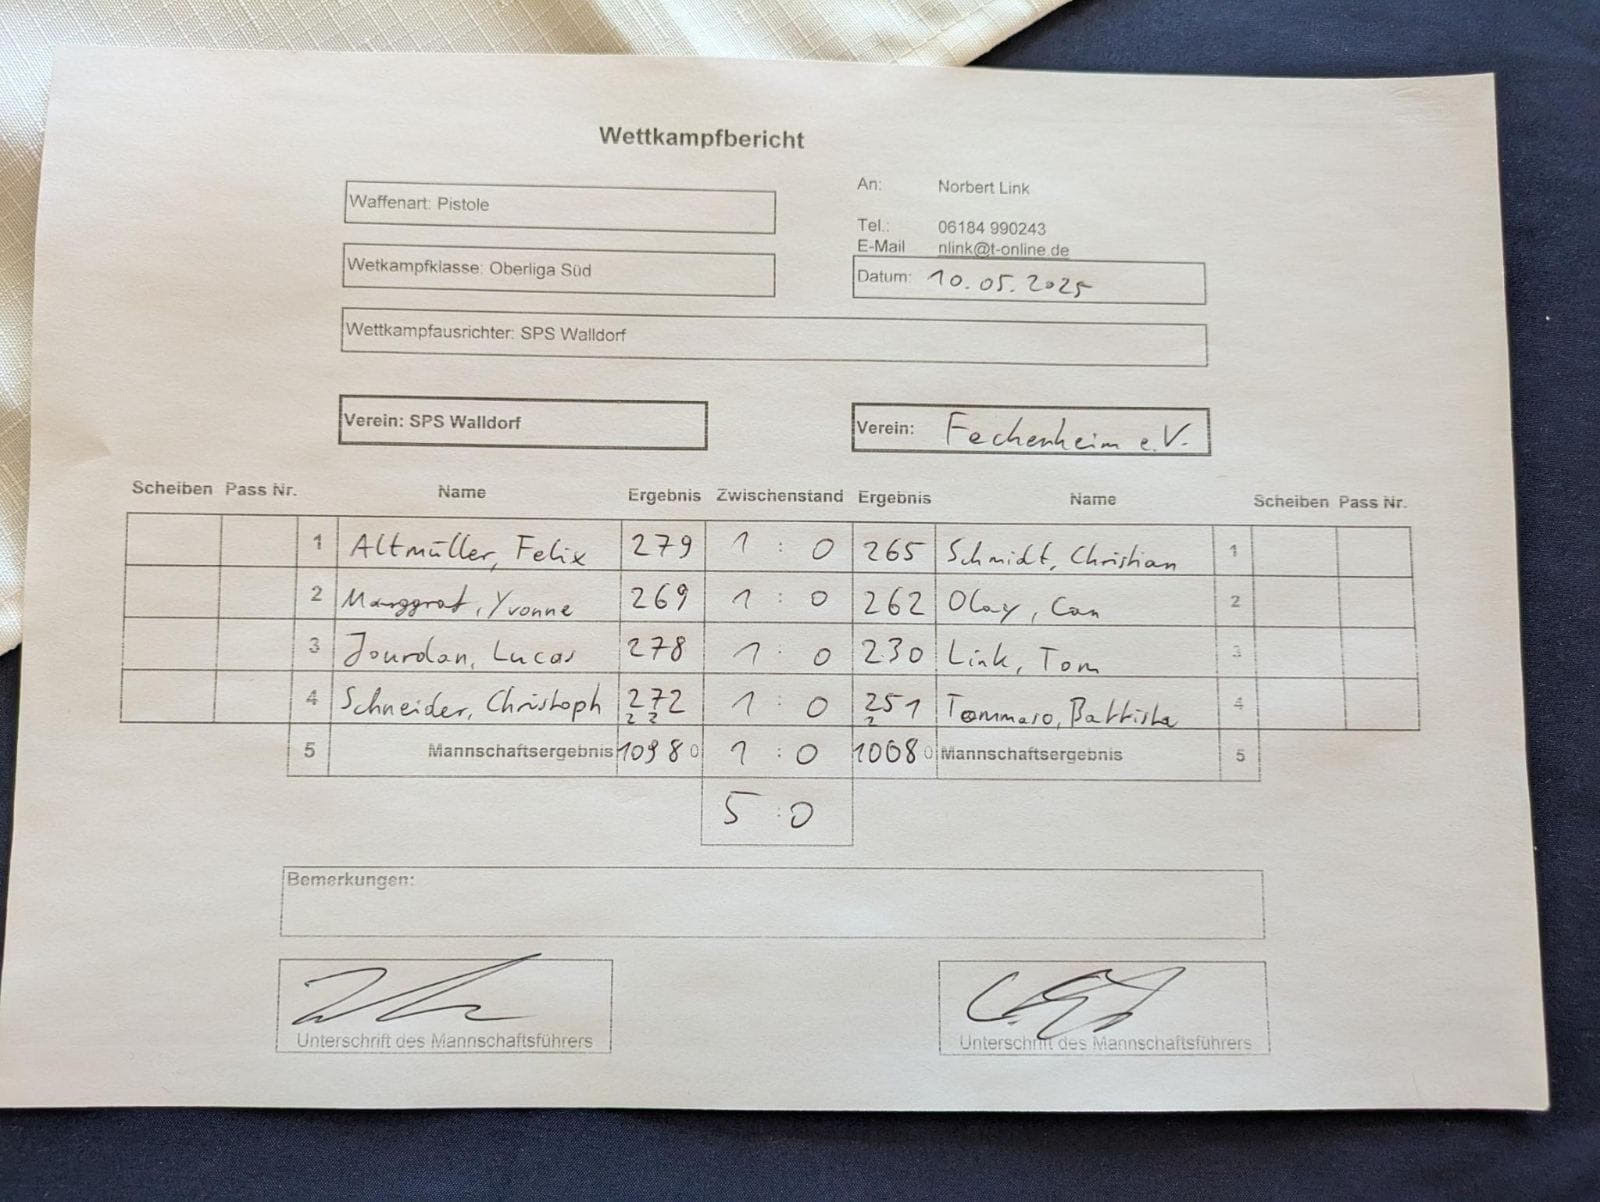 Wettkampfbericht
Waffenart: Pistole
An: Norbert Link
Tel.: 06184 990243
E-Mail nlink@t-online.de
Wetkampfklasse: Oberliga Süd
Datum: 10.05.2025
Wettkampfausrichter: SPS Walldorf
Verein: SPS Walldorf
Verein: Fechenheim e.V.
Scheiben Pass Nr. Name Ergebnis Zwischenstand Ergebnis Name Scheiben Pass Nr.
1 Altmüller, Felix 279 1 : 0 265 Schmidt, Christian 1
2 Marggraf, Yvonne 269 1 : 0 262 Olay, Can 2
3 Jourdan, Lucas 278 1 : 0 230 Link, Tom 3
4 Schneider, Christoph 272 1 : 0 251 Tommaso, Battista 4
2 2 2
5 Mannschaftsergebnis 1098 0 1 : 0 1008 0 Mannschaftsergebnis 5
5 : 0
Bemerkungen:
Unterschrift des Mannschaftsführers
Unterschrift des Mannschaftsführers